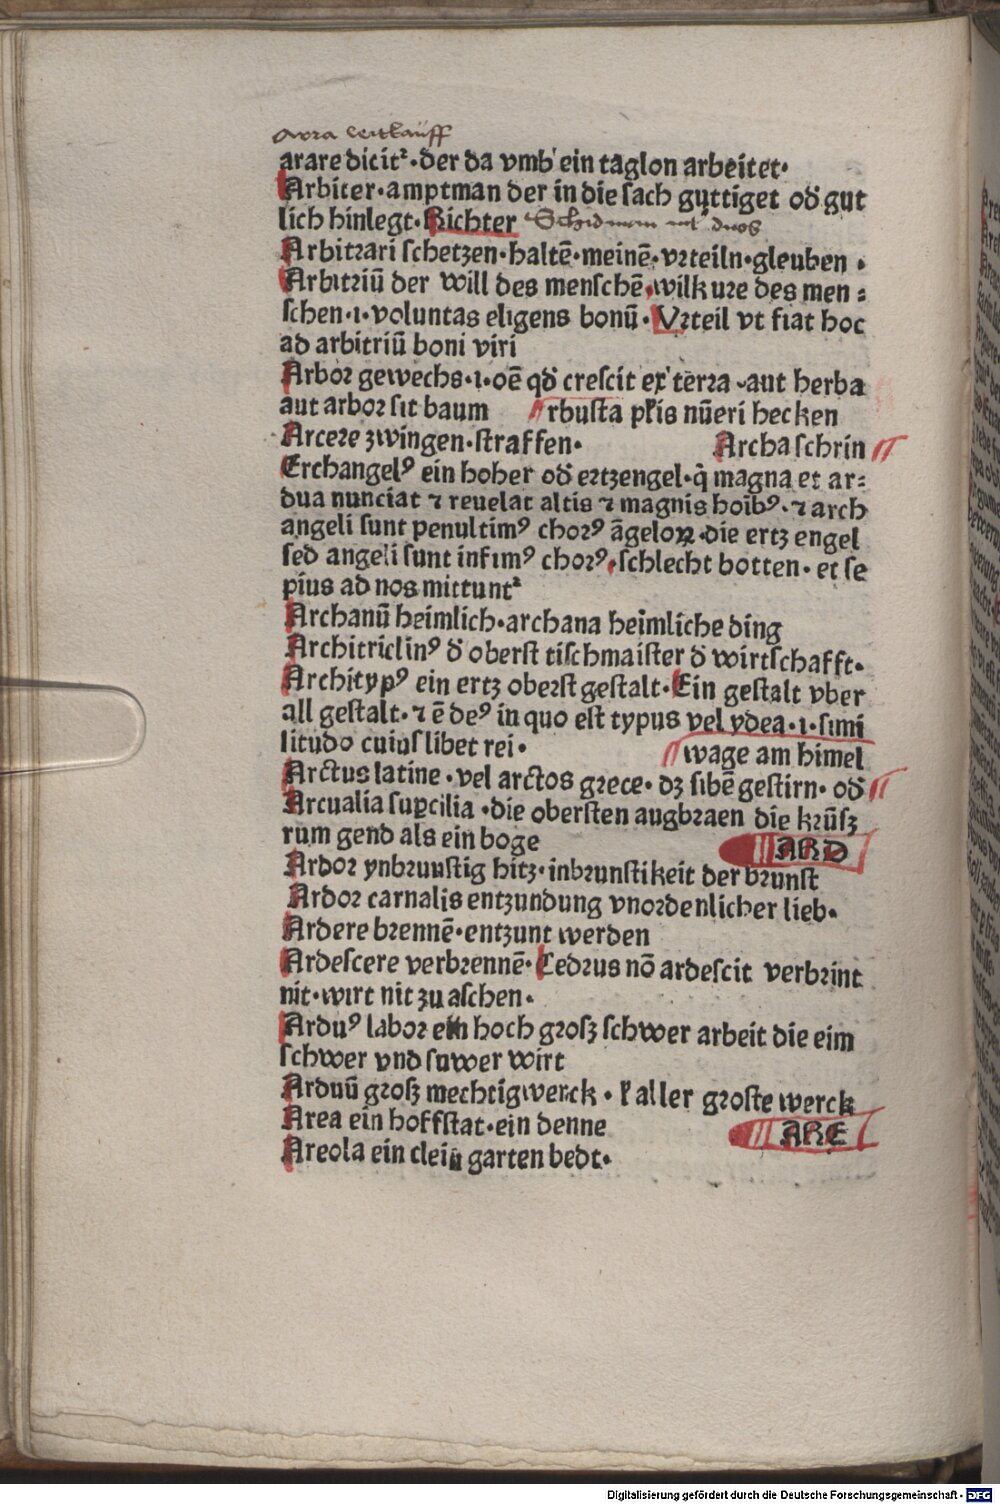 arare dicitᷣ· der da vmb ein taglon arbeitet·
Arbiter· amptman der in die sach gúttiget od̕ gut
lich hinlegt· Richter
Arbitrari schetzen· haltē· meinē· vrteiln· gleuben ·
Arbitriū der will des menschē· wilkure des men⸗
schen· i· voluntas eligens bonū· Vrteil vt fiat hoc
ad arbitriū boni viri
Arbor gewechs· i· oē qd̕ crescit ex terra · aut herba
aut arbor sit baum Arbusta pl̕is nūeri hecken
Arcere zwingen· straffen· Archa schrin
Erchangelꝰ ein hoher od̕ ertzengel· q̄ magna et ar⸗
dua nunciat ⁊ reuelat altis ⁊ magnis hoībꝰ· ⁊ arch
angeli sunt penultimꝰ chorꝰ āgeloꝝ· die ertz engel
sed angeli sunt infimꝰ chorꝰ· schlecht botten· et se
pius ad nos mittuntᷣ
Archanū heimlich· archana heimliche ding
Architriclinꝰ d̕ oberst tischmaister d̕ wirtschafft·
Architypꝰ ein ertz oberst gestalt· Ein gestalt vber
all gestalt· ⁊ ē deꝰ in quo est typus vel ydea· i· simi
litudo cuiuslibet rei· wage am himel
Arctus latine · vel arctos grece· dz sibē gestirn· od̕
Arcualia suꝑcilia · die obersten augbraen die krūsz
rum gend als ein boge ARD
Ardor ynbrunstig hitz· inbrunstikeit der brunst
Ardor carnalis entzundung vnordenlicher lieb·
Ardere brennē· entzunt werden
Ardescere verbrennē· Cedrus nō ardescit verbrint
nit· wirt nit zu aschen·
Arduꝰ labor ein hoch grosz schwer arbeit die eim
schwer vnd suwer wirt
Arduū grosz mechtigwerck · l̕ aller groste werck
Area ein hoffstat· ein denne ARE
Areola ein clein garten bedt·
Digitalisierung gefördert durch die Deutsche Forschungsgemeinschaft - DFG